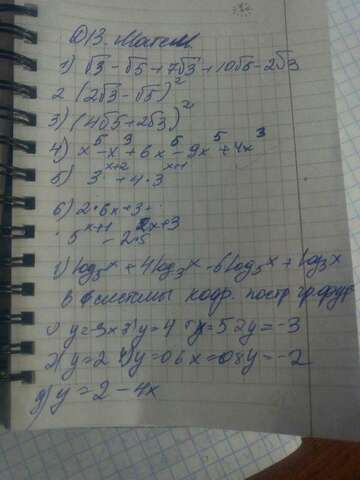 Д/З. Матем.
1) √3 - √5 + 7√3 + 10√5 - 2√3
2 (2√3 - √5)²
3) (4√5 + 2√3)²
4) x⁵ - x³ + 6x⁵ - 9x⁵ + 4x³
5) 3ˣ⁺² + 4·3ˣ⁺¹
6) 2·6x+3+
5ˣ⁺¹ - 2·5²ˣ⁺³
log₅x + 4log₃x - 6log₅x + log₃x
В системы коор. постр гр. фун
1) y = 3x 3) y = 4 x = 5 2y = -3
2) y = 2 4) y = 0 6 x = 0 8 y = -2
9) y = 2 - 4x